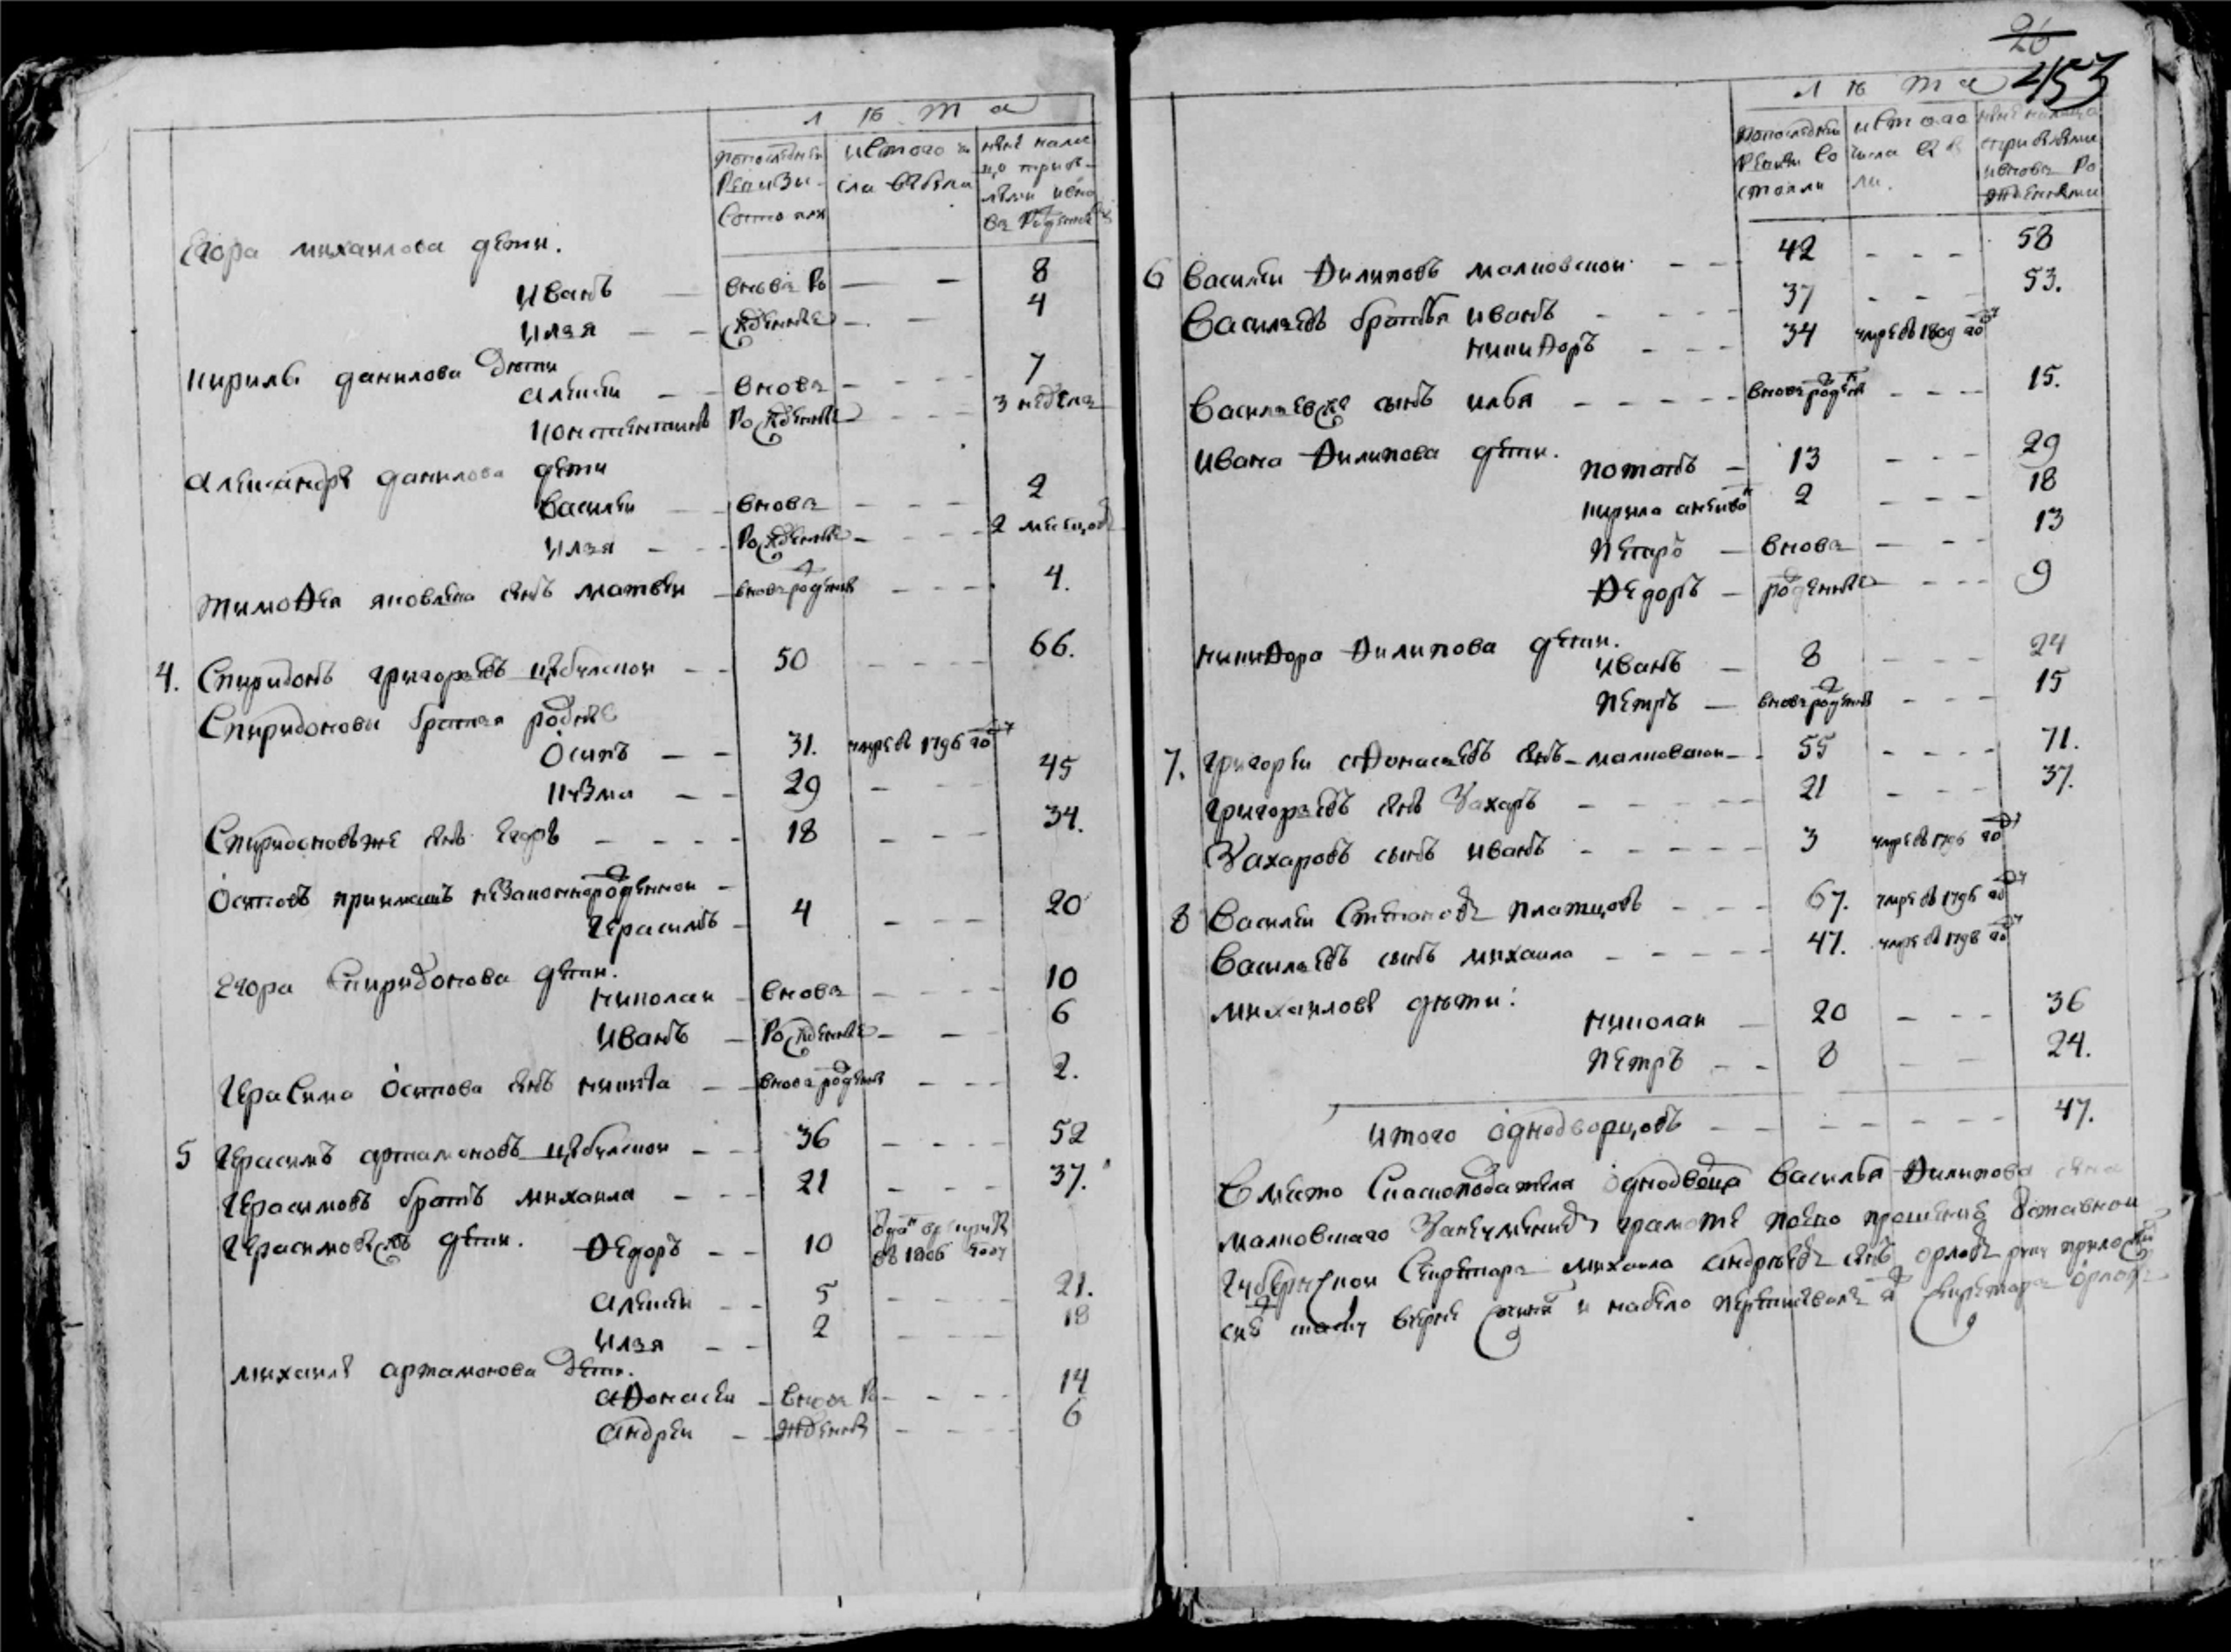 лѣта
попоследнеи ревизи состояли
ис того числа выбыли
ныне налицо с прибылыми и вновь рожденными
Егора михаилова дети.
Иванъ — вновь ро — — 8
Илья — — жденные — — 4
кирилы данилова дети
алексеи — вновь — — — 7
Константинъ рожденные — — — 3 недели
александра данилова дети
василеи — вновь — — — 2
Илья — — рожденные — — — 2 месецовъ
тимоѳея яковлева сынъ матвеи — вновь рожденъ — — — 4.
4. Спиридонъ григорьевъ цыбулской — — 50 — — — 66.
Спиридоновы братья родные
Осипъ — — 31. умре въ 1796 году
кузма — — 29 — — — 45
Спиридоновъ же сынъ Егоръ — — — — 18 — — — 34.
Осиповъ приимышъ незаконнорожденной —
Герасимъ — 4 — — — 20
Егора Спиридонова дети.
николаи — вновь — — — 10
Иванъ — рожденные — — 6
Герасима Осипова сынъ никита — — вновь рожденъ — — — 2.
5 Герасимъ артамоновъ цыбулской — — 36 — — — 52
Герасимовъ братъ михаила — — — 21 — — — 37.
Герасимовы жъ дети. Ѳедоръ — — 10 отданъ в рекруты въ 1806 году
алексеи — — 5 — — — 21.
Илья — — 2 — — — 18
михаилы артамонова дети.
аѳонасеи — вновь ро — — — 14
андреи — — жденные — — — 6
26
453
лѣта
попоследнеи ревизи состояли
ис того числа выбыли.
ныне налицо с прибылыми и вновь рожденными
6 Василеи Ѳилиповъ малковской — — 42 — — — 58
Васильевы братья иванъ — — — — 37 — — — 53.
никиѳоръ — — — 34 умре въ 1809 году
Васильев же сынъ илья — — — — — вновь рожденъ — — — 15.
Ивана Ѳилипова дети. потапъ — 13 — — — 29
кирила 2 — — — 18
петръ — вновь — — — 13
Ѳедоръ — рожденные — — — 9
никиѳора Ѳилипова дети.
иванъ — 8 — — — 24
петръ — вновь рожденъ — — — 15
7. Григореи аѳонасьевъ сынъ малковской — 55 — — — 71.
Григорьевъ сынъ Захаръ — — — — 21 — — — 37.
Захаровъ сынъ иванъ — — — — — 3 умре въ 1796 году
8 Василеи Степановъ платцовъ — — — 67. умре въ 1796 году
Васильевъ сынъ михаила — — — — — 47. умре въ 1798 году
михаиловы дети:
николаи — 20 — — — 36
петръ — — 8 — — 24.
итого однодворцовъ — — — — — — — 47.
Вместо Сказкоподателя однодворца Василья Ѳилипова сына
малковскаго Занеумениемъ грамоте поево прошению отставной
Губернской Секретарь михаила андреевъ сынъ орловъ руку приложилъ
сию сказку сочинял и набело переписывалъ Секретарь орловъ